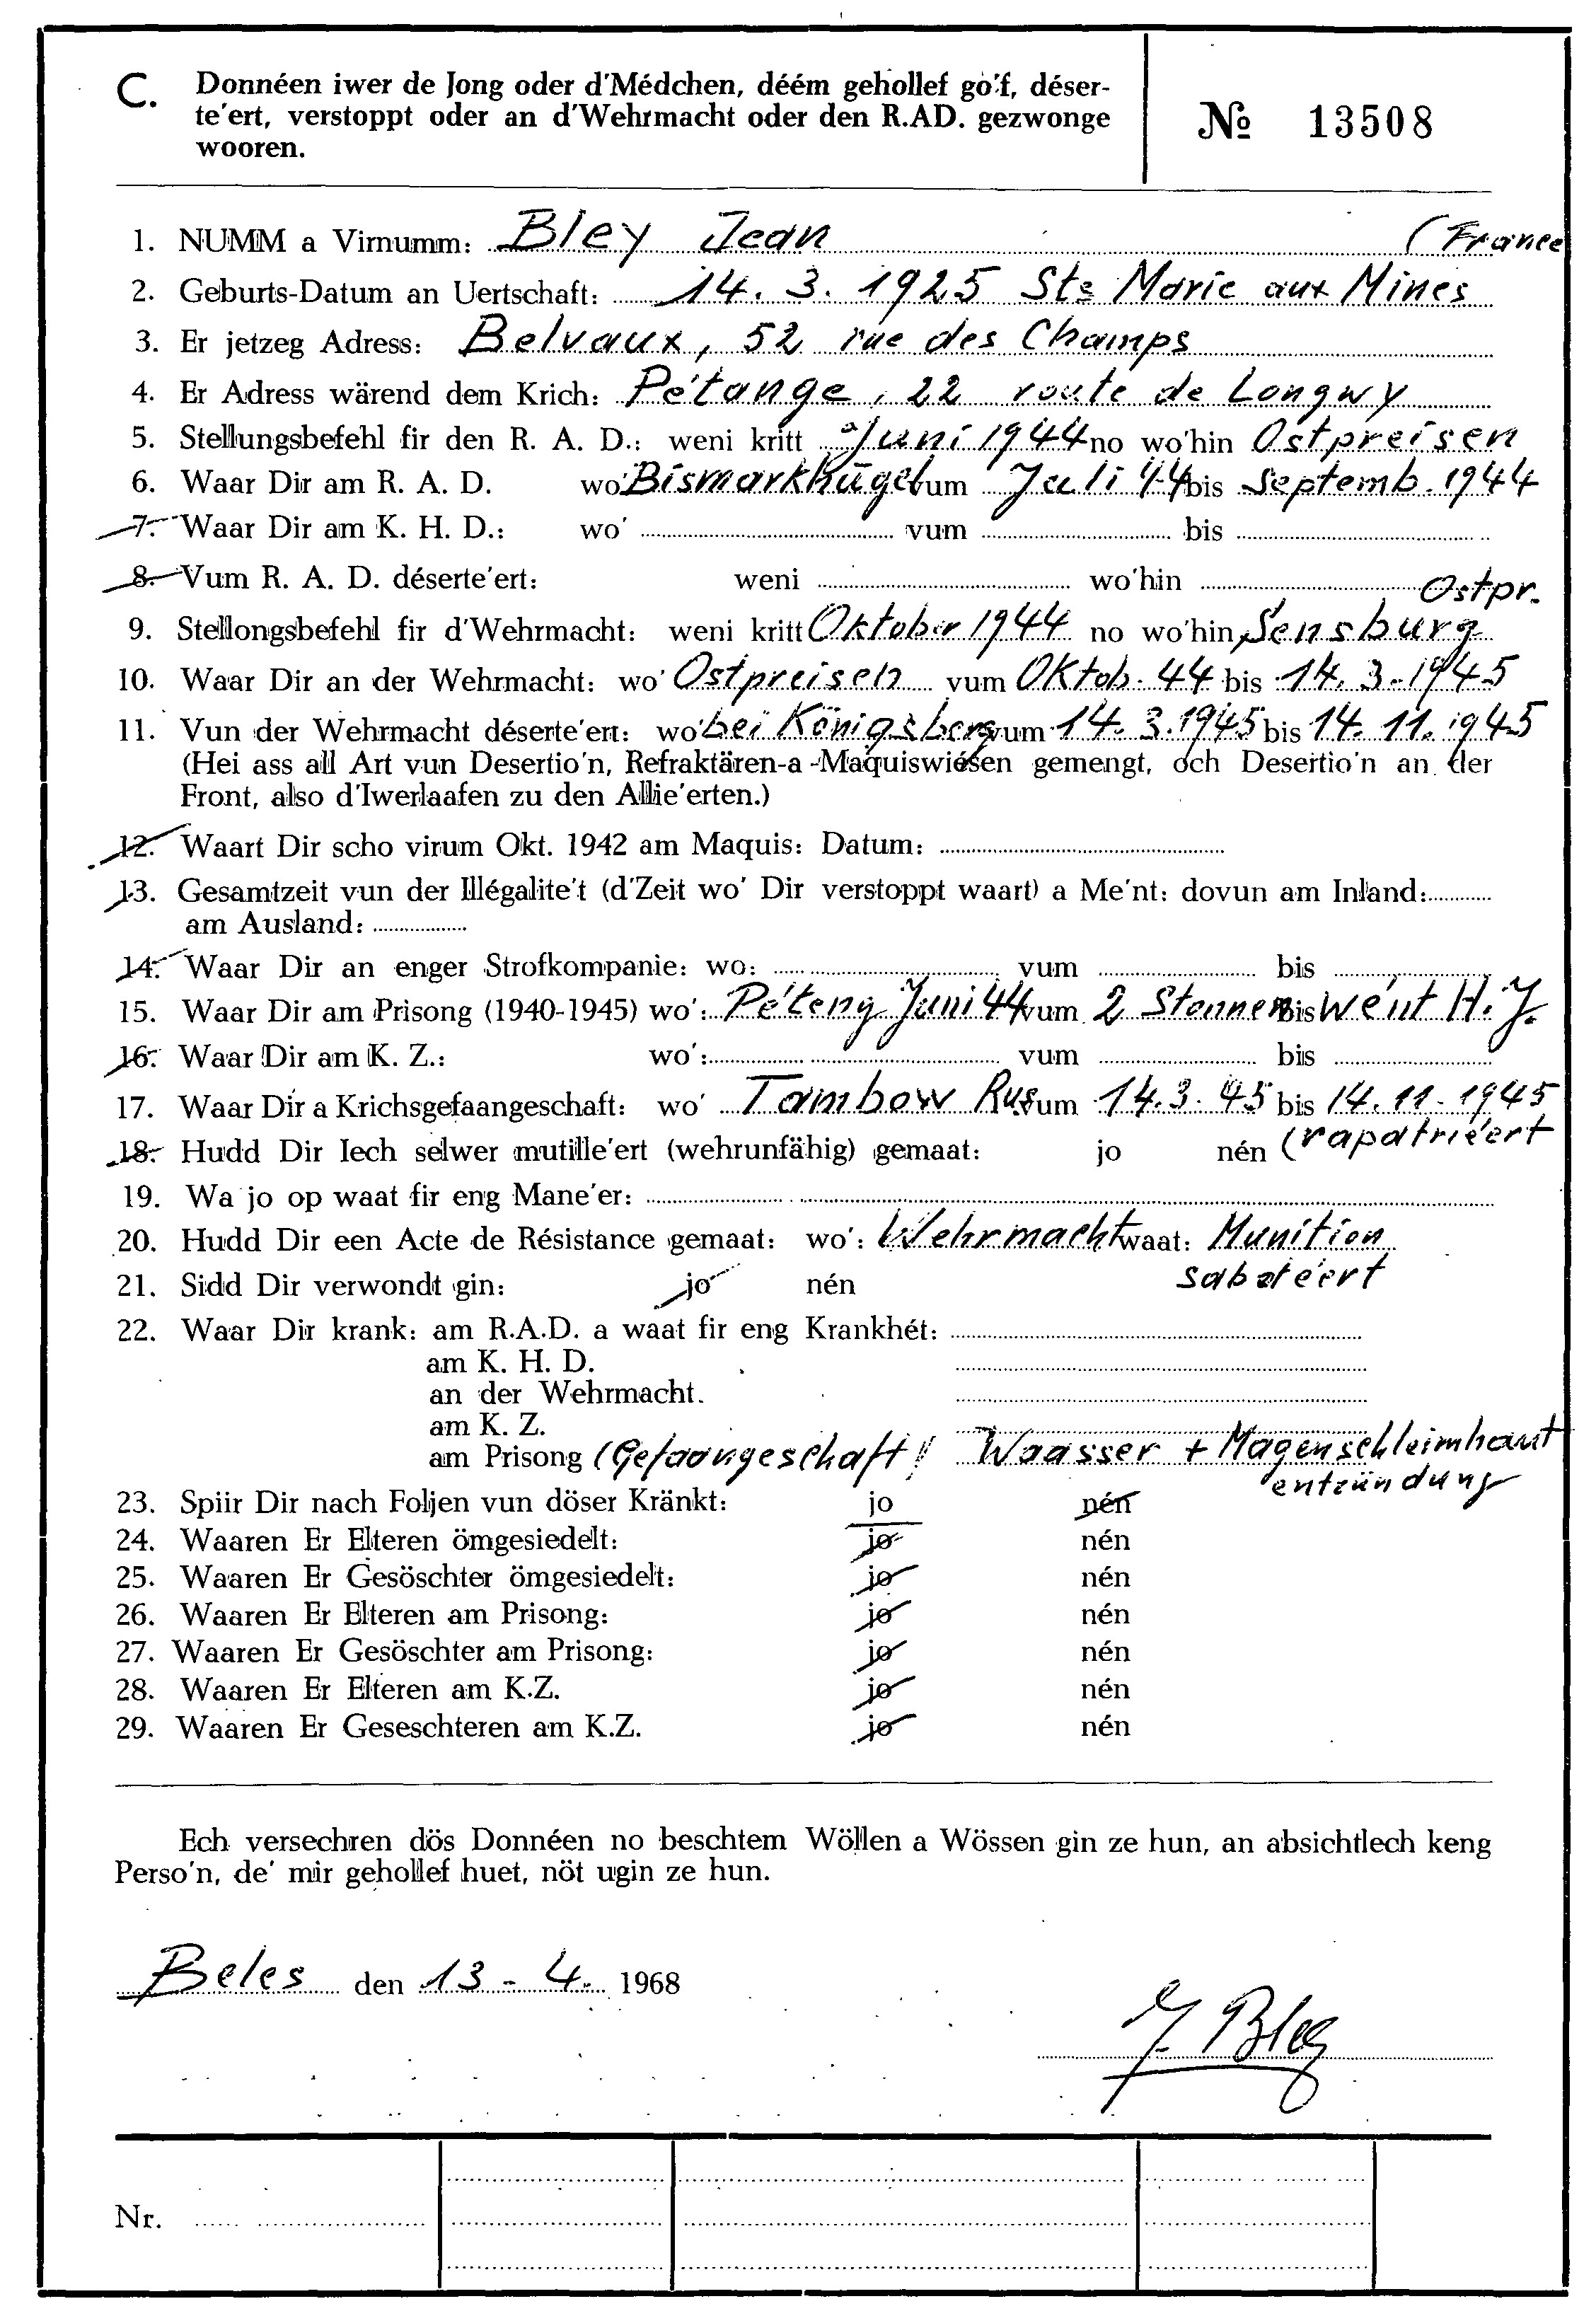 C. Donnéen iwer de Jong oder d'Médchen, déém gehollef go'f, déser-
te'ert, verstoppt oder an d'Wehrmacht oder den R.AD. gezwonge
wooren.
№ 13508
1. NUMM a Virnumm: Bley Jean (France
2. Geburts-Datum an Uertschaft: 14. 3. 1925 Ste Marie aux Mines
3. Er jetzeg Adress: Belvaux, 52 rue des Champs
4. Er Adress wärend dem Krich: Pétange, 22 route de Longwy
5. Stellungsbefehl fir den R. A. D.: weni kritt Juni 1944 no wo'hin Ostpreisen
6. Waar Dir am R. A. D. wo' Bismarkhügel vum Juli 44 bis Septemb. 1944
7. Waar Dir am K. H. D.: wo' vum bis
8. Vum R. A. D. déserte'ert: weni wo'hin
Ostpr.
9. Stellongsbefehl fir d'Wehrmacht: weni kritt Oktober 1944 no wo'hin Sensburg
10. Waar Dir an der Wehrmacht: wo' Ostpreisen vum Oktob. 44 bis 14. 3. 1945
11. Vun der Wehrmacht déserte'ert: wo' bei Königsberg vum 14. 3. 1945 bis 14. 11. 1945
(Hei ass all Art vun Desertio'n, Refraktären-a -Maquiswiésen gemengt, och Desertio'n an der
Front, also d'Iwerlaafen zu den Allie'erten.)
12. Waart Dir scho virum Okt. 1942 am Maquis: Datum:
13. Gesamtzeit vun der Illégalite't (d'Zeit wo' Dir verstoppt waart) a Me'nt: dovun am Inland:
am Ausland:
14. Waar Dir an enger Strofkompanie: wo: vum bis
15. Waar Dir am Prisong (1940-1945) wo': Péteng Juni 44 vum 2 Stonnen bis wént H. J.
16. Waar Dir am K. Z.: wo': vum bis
17. Waar Dir a Krichsgefaangeschaft: wo' Tambow Rus vum 14. 3. 45 bis 14. 11. 1945
(rapatriéert
18. Hudd Dir Iech selwer mutille'ert (wehrunfähig) gemaat: jo nén
19. Wa jo op waat fir eng Mane'er:
20. Hudd Dir een Acte de Résistance gemaat: wo': Wehrmacht waat: Munition
sabotéert
21. Sidd Dir verwondt gin: jo nén
22. Waar Dir krank: am R.A.D. a waat fir eng Krankhét:
am K. H. D.
an der Wehrmacht.
am K. Z.
am Prisong (Gefaangeschaft) Waasser + Magenschleimhaut
entzündung
23. Spiir Dir nach Foljen vun döser Kränkt: jo nén
24. Waaren Er Elteren ömgesiedelt: jo nén
25. Waaren Er Gesöschter ömgesiedelt: jo nén
26. Waaren Er Elteren am Prisong: jo nén
27. Waaren Er Gesöschter am Prisong: jo nén
28. Waaren Er Elteren am K.Z. jo nén
29. Waaren Er Geseschteren am K.Z. jo nén
Ech versechren dös Donnéen no beschtem Wöllen a Wössen gin ze hun, an absichtlech keng
Perso'n, de' mir gehollef huet, nöt ugin ze hun.
Beles den 13 - 4. 1968
J. Bley
Nr.